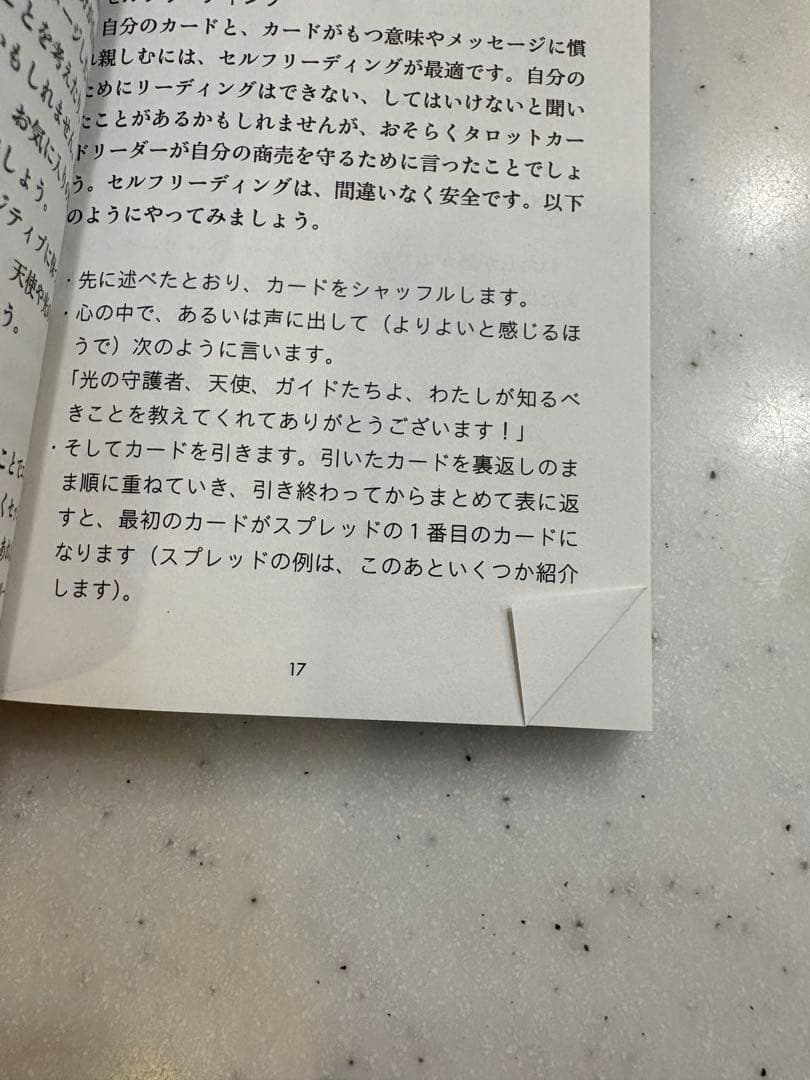 セルフリーディング
自分のカードと、カードがもつ意味やメッセージに慣
れ親しむには、セルフリーディングが最適です。自分の
ためにリーディングはできない、してはいけないと聞い
たことがあるかもしれませんが、おそらくタロットカー
ドリーダーが自分の商売を守るために言ったことでしょ
う。セルフリーディングは、間違いなく安全です。以下
のようにやってみましょう。
・先に述べたとおり、カードをシャッフルします。
・心の中で、あるいは声に出して（よりよいと感じるほ
うで）次のように言います。
「光の守護者、天使、ガイドたちよ、わたしが知るべ
きことを教えてくれてありがとうございます！」
・そしてカードを引きます。引いたカードを裏返しのま
ま順に重ねていき、引き終わってからまとめて表に返
すと、最初のカードがスプレッドの1番目のカードに
なります（スプレッドの例は、このあといくつか紹介
します）。
17
とを考えたり
かもしれません
お気に入り
しょう。
ジティブに
天使や
う。
ことで